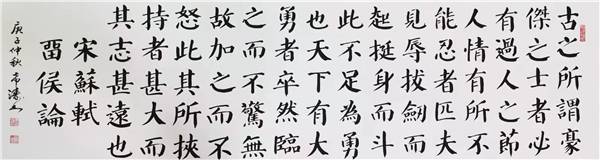 古之所謂豪
傑之士者必
有過人之節
人情有所不
能忍者匹夫
見辱拔劍而
起挺身而斗
此不足為勇
也天下有大
勇者卒然臨
之而不驚無
故加之而不
怒此其所挾
持者甚大而
其志甚遠也
宋蘇軾
畱侯論
庚子仲秋